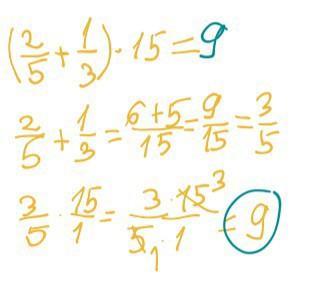 (2/5 + 1/3) · 15 = 9
2/5 + 1/3 = (6+5)/15 = 9/15 = 3/5
3/5 · 15/1 = (3 · 15³)/(5₁ · 1) = 9